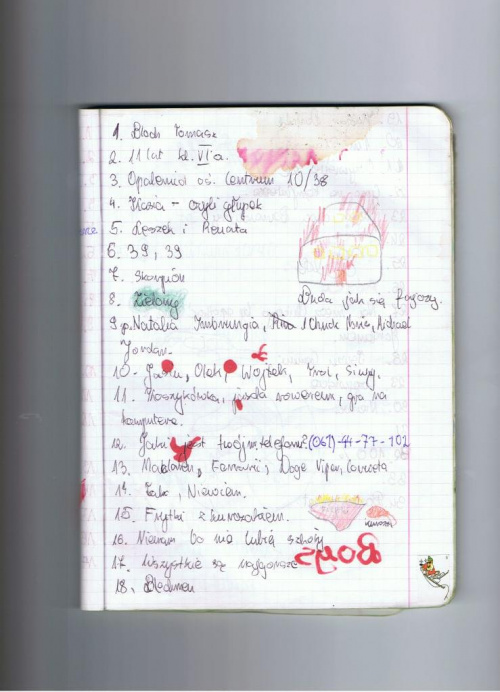 1. Błoch Tomasz
2. 11 lat kl. VI a.
3. Opalenica oś. Centrum 10/38
4. czyli głupek
5. Leszek i Renata
6. 39, 39
7. Skorpion
8. Zielony
Buda jak się
9. p. Natalia Imbruglia, Chuck Noris, Michael
Jordan.
10. Olek, Wojtek, Siwy.
11. Koszykówka, jazda rowerem, gra na
komputerze.
12. Jaki jest twój nr. telefonu? (061)-44-77-102
13. Maclaren, Ferrari, Doge Viper,
14. Tak, Niewiem.
15. Frytki z kurczakiem.
kurczak
16. Niewiem bo nie lubię szkoły
17. Wszystkie są najgorsze
Borys
18.